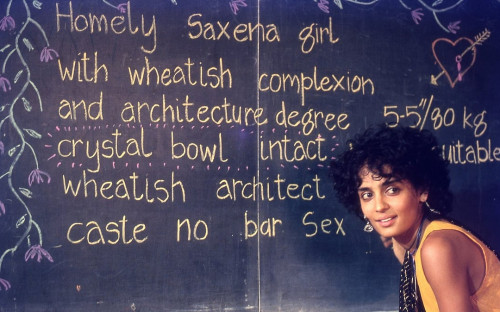 Homely Saxena girl
with wheatish complexion
and architecture degree 5-5"/80 kg
crystal bowl intact uitable
wheatish architect
caste no bar Sex